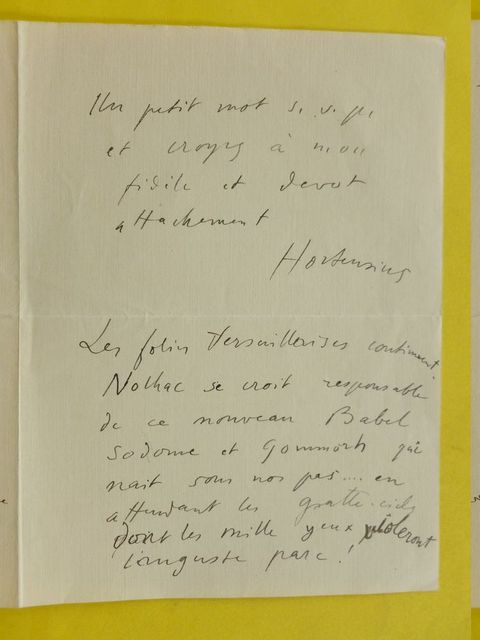 Un petit mot s. v. pl.
et croyez à mon
fidèle et devot
attachement
Hortensius
Les folies Versaillaises continuent.
Nolhac se croit responsable
de ce nouveau Babel
Sodome et Gommorh qui
nait sous nos pas.... en
attendant les gratte-ciels
dont les mille yeux
l'auguste parc !